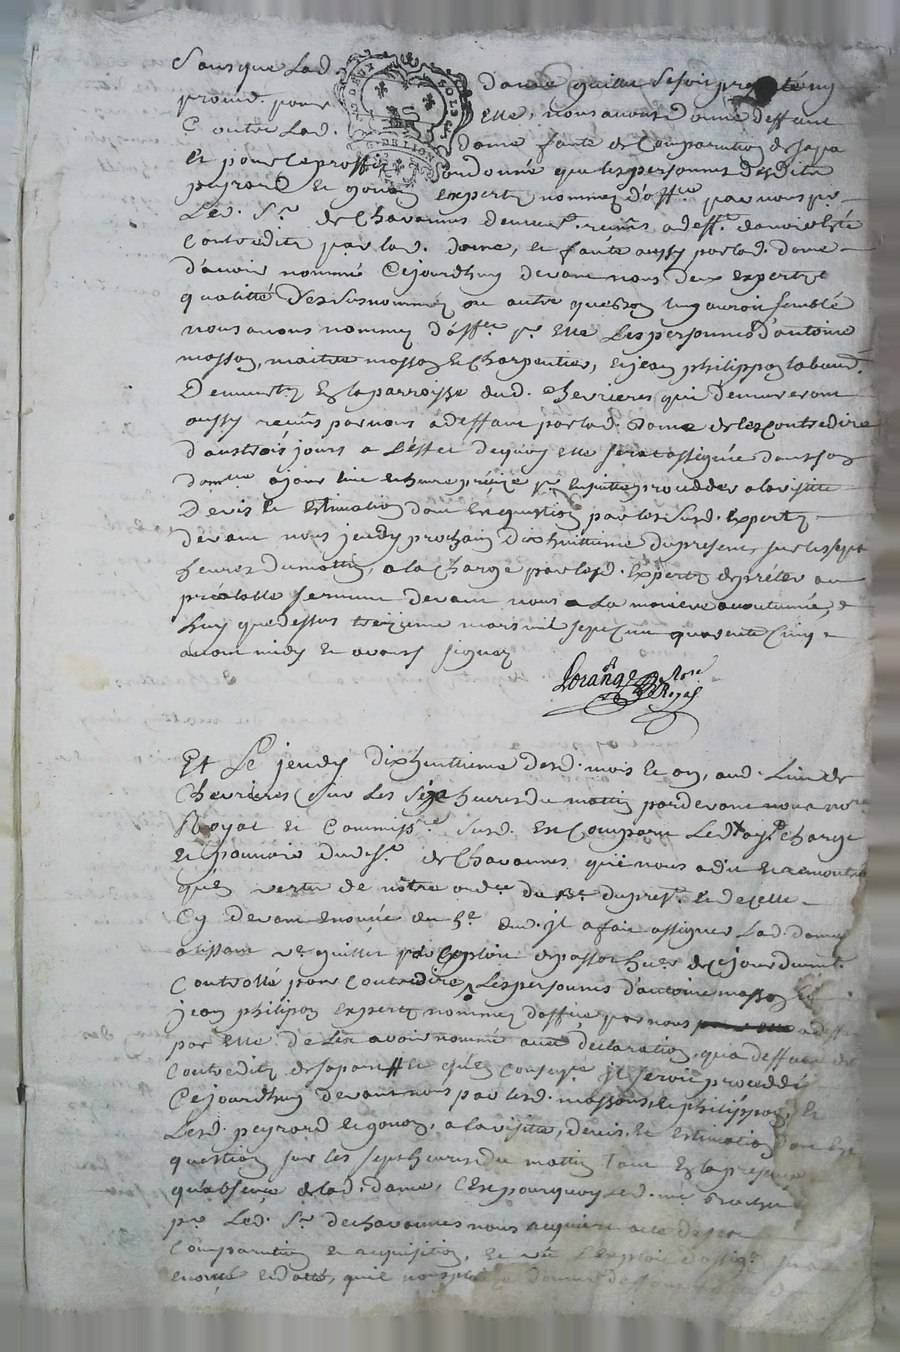 Sans que Lad. dame quillet se soit presenté ny
proud. pour Elle, nous avons donné deffaut
Contre Lad. dame faute de Comparution de sa part
Et pour le proffit ordonné que les personnes desdits
peyrard et gonon experts nommez d'offce par nous pr
Led. Sr. de Chavannes demeurt. reçeus a deff. d'avoir esté
Contredits par lad. dame, et faute aussy par lad. dame
d'avoir nommé Cejourdhuy devant nous deux experts
qualitté des susnommés ou autre que bon luy auroit semblé
nous avons nommez d'offce pr. Elle Les personnes d'antoine
masson, maitre masson et charpentier, et jean philippon labour.
Demeurts En la parroisse dud. Chevrieres qui demeureront
aussy reçus par nous a deffaut par lad. Dame de les Contredire
dans trois jours a L'effet dequoy elle sera assignée dans son
domlle a jour lieu et heure précize pr. Ensuitte proceder a la visitte
Devis et Estimation dont En question par les susd. Experts
devant nous jeudy prochain dixhuittieme du present, sur les sept
heures du mattin, a la Charge par lesd. Experts de préter au
préalable serment devant nous a La maniere accoutumée,
huy que dessus treizieme mars mil sept cent quarente Cinq
avant midy Et avons signez
Lorange Nore Royal
Et Le jeudy dixhuittieme desd. mois et an, aud. Lieu de
Chevrieres sur Les sept heures du mattin pardevant nous nore
Royal et Commissre. susd. Est Comparu Led. ayt. charge
Et pouvoir dud. Sr. de Chavannes qui nous a dit et remontré
qu'en vertu de nôtre ordce du 13e. du prest. et de celle
Cy devant énoncée du 5e dud. jl a fait assigner Lad. dame
quillet par Exploit de
Controllé pour Contredire Les personnes d'antoine masson Et
jean philipon Experts nommez d'office par nous a deffaut
par Elle de Les avoir nommé avec déclaration, qua deffaut de
Contredits de sa part # et qu'en Conseqce jl seroit proceddé
Cejourdhuy devant nous par lesd. massons, et philippon, Et
Lesd. peyrard et gonon, a la visitte, devis, et Estimation dont Est
question sur les sept heures du mattin tant En la presence
qu'absence de lad. dame, C'est pourquoy led. me
pr. Led. Sr. de chavannes nous requiert acte de sa
Comparution et requisition, Et vu L'exploit d'assigon
énoncé et datté, qu'il nous plaise donner deffaut